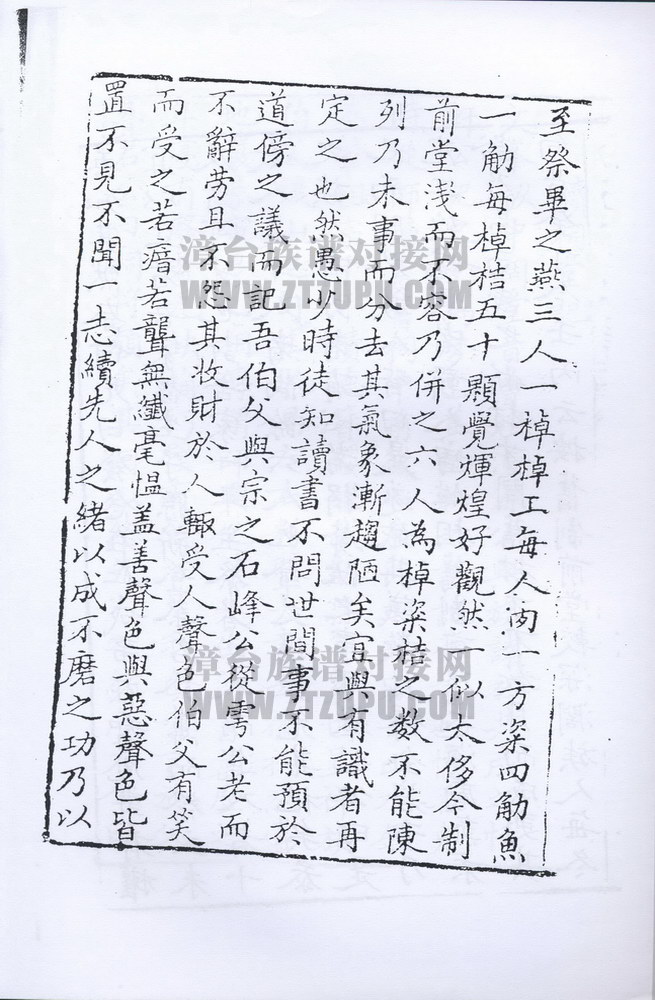 至祭畢之燕三人一棹棹工每人肉一方粢四觔魚
一觔每棹桔五十顆覺煇煌好觀然一似太侈今制
前堂淺而不容乃併之六人為棹粢桔之数不能陳
列乃未事而分去其氣象漸趨陋矣宜與有識者再
定之也然愚少時徒知讀書不問世間事不能預於
道傍之議而記吾伯父與宗之石峰公從雩公老而
不辭劳且不怨其收財於人輙受人聲色伯父有笑
而受之若瘖若聾無纖毫愠盖善聲色與惡聲色皆
置不見不聞一志續先人之緒以成不磨之功乃以
漳台族谱对接网
WWW.ZTZUPU.COM
漳台族谱对接网
WWW.ZTZUPU.COM